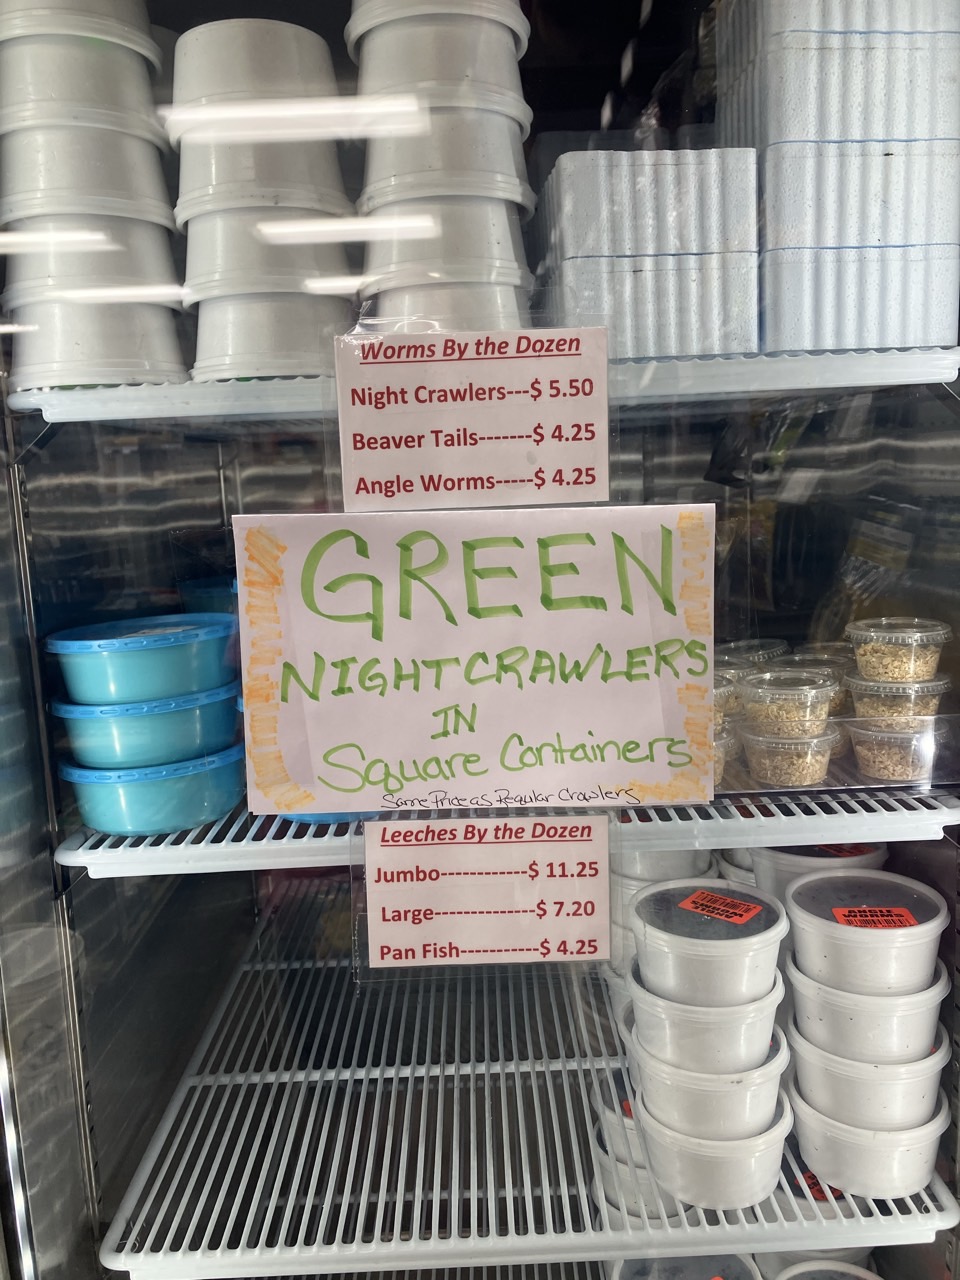 Worms By the Dozen
Night Crawlers---$ 5.50
Beaver Tails-------$ 4.25
Angle Worms-----$ 4.25
GREEN
NIGHTCRAWLERS
IN
Square Containers
Same Price as Regular Crawlers
Leeches By the Dozen
Jumbo------------$ 11.25
Large--------------$ 7.20
Pan Fish-----------$ 4.25
ANGLE
WORMS
ANGLE
WORMS